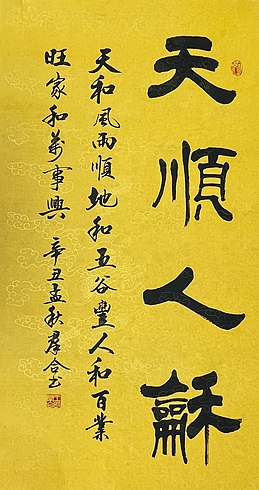 天順人龢
天和風雨順地和五谷豐人和百業
旺家和萬事興 辛丑孟秋群合书